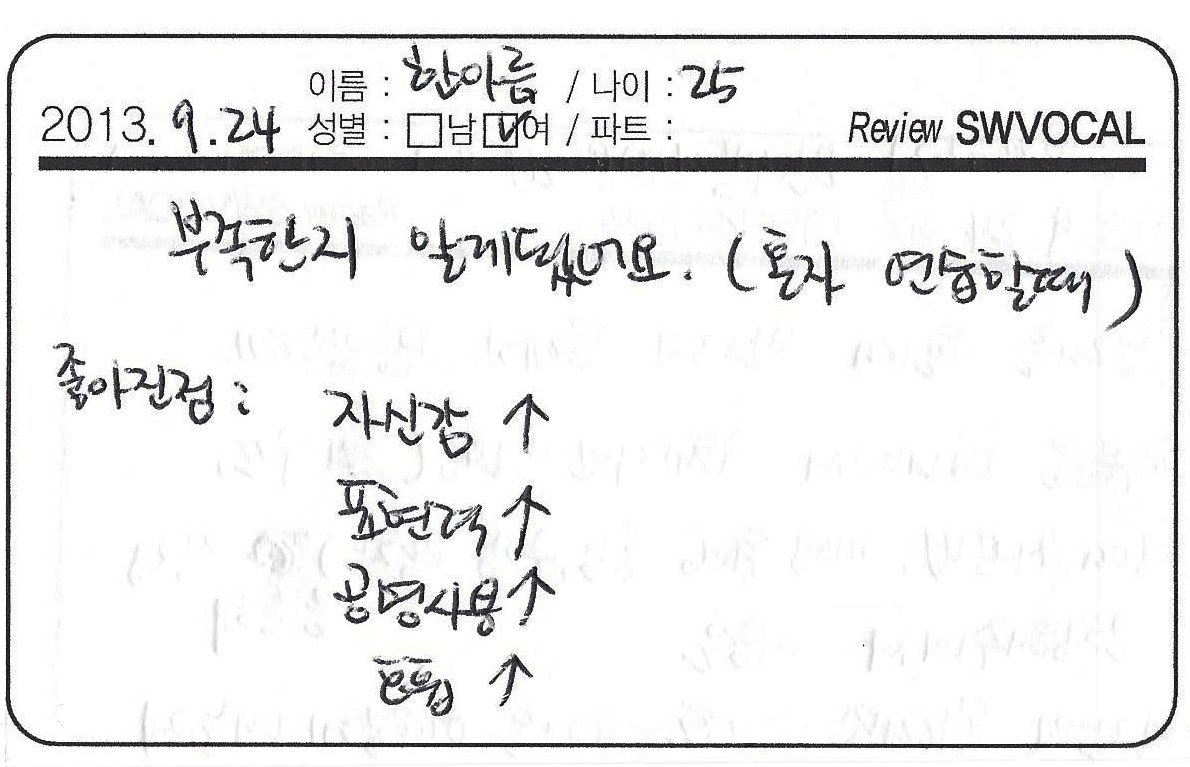 이름 : 한아름 / 나이 : 25
2013. 9. 24 성별 : □남 ☑여 / 파트 : Review SWVOCAL
부족한지 알게됐어요. (혼자 연습할때)
좋아진점 : 자신감 ↑
표현력 ↑
공명사용 ↑
호흡 ↑